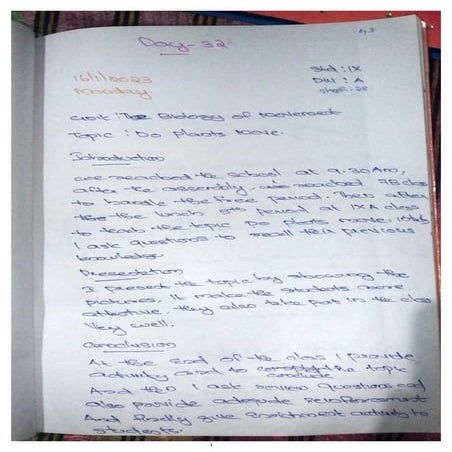 Pg. 3
Day - 32
16/1/2023
Monday
Std : IX
Div : A
Unit : The Biology of Movement
Topic : Do Plants Move.
Introduction
we reached the school at 9.30 Am,
after the assembly, we reached 9B class
to handle the free period. Then after
the the lunch 5th period at IXA class
to teach the topic Do plants move.
I ask questions to recall their previous
knowledge
Presentation
I present the topic by showing the
pictures. It make the students more
attentive. they also take part in the class
Very well.
Conclusion
At the End of the class I provide
activity card to conclude the topic
And I ask review Questions and
also provide adequate Reinforcement
And finally give Enrichment activity to
students.